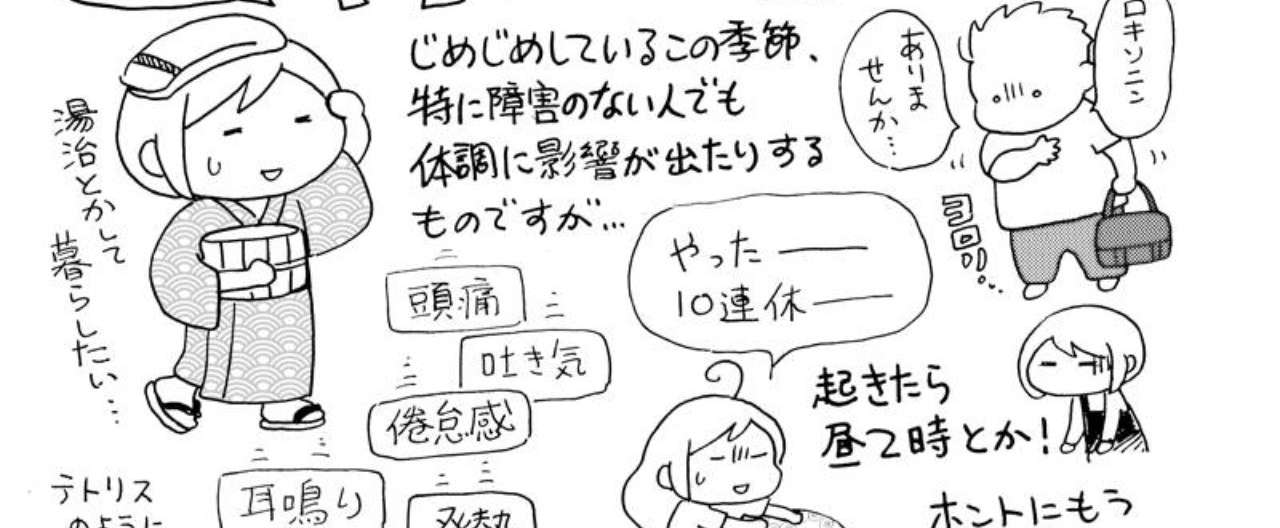 ロキソニン
ありま
せんか…
ヨロ…
じめじめしているこの季節、
特に障害のない人でも
体調に影響が出たりする
ものですが…
湯治とかして
暮らしたい…
やった――
10連休――
頭痛
吐き気
倦怠感
耳鳴り
発熱
起きたら
昼て時とか!
テトリス
のように
ホントにもう